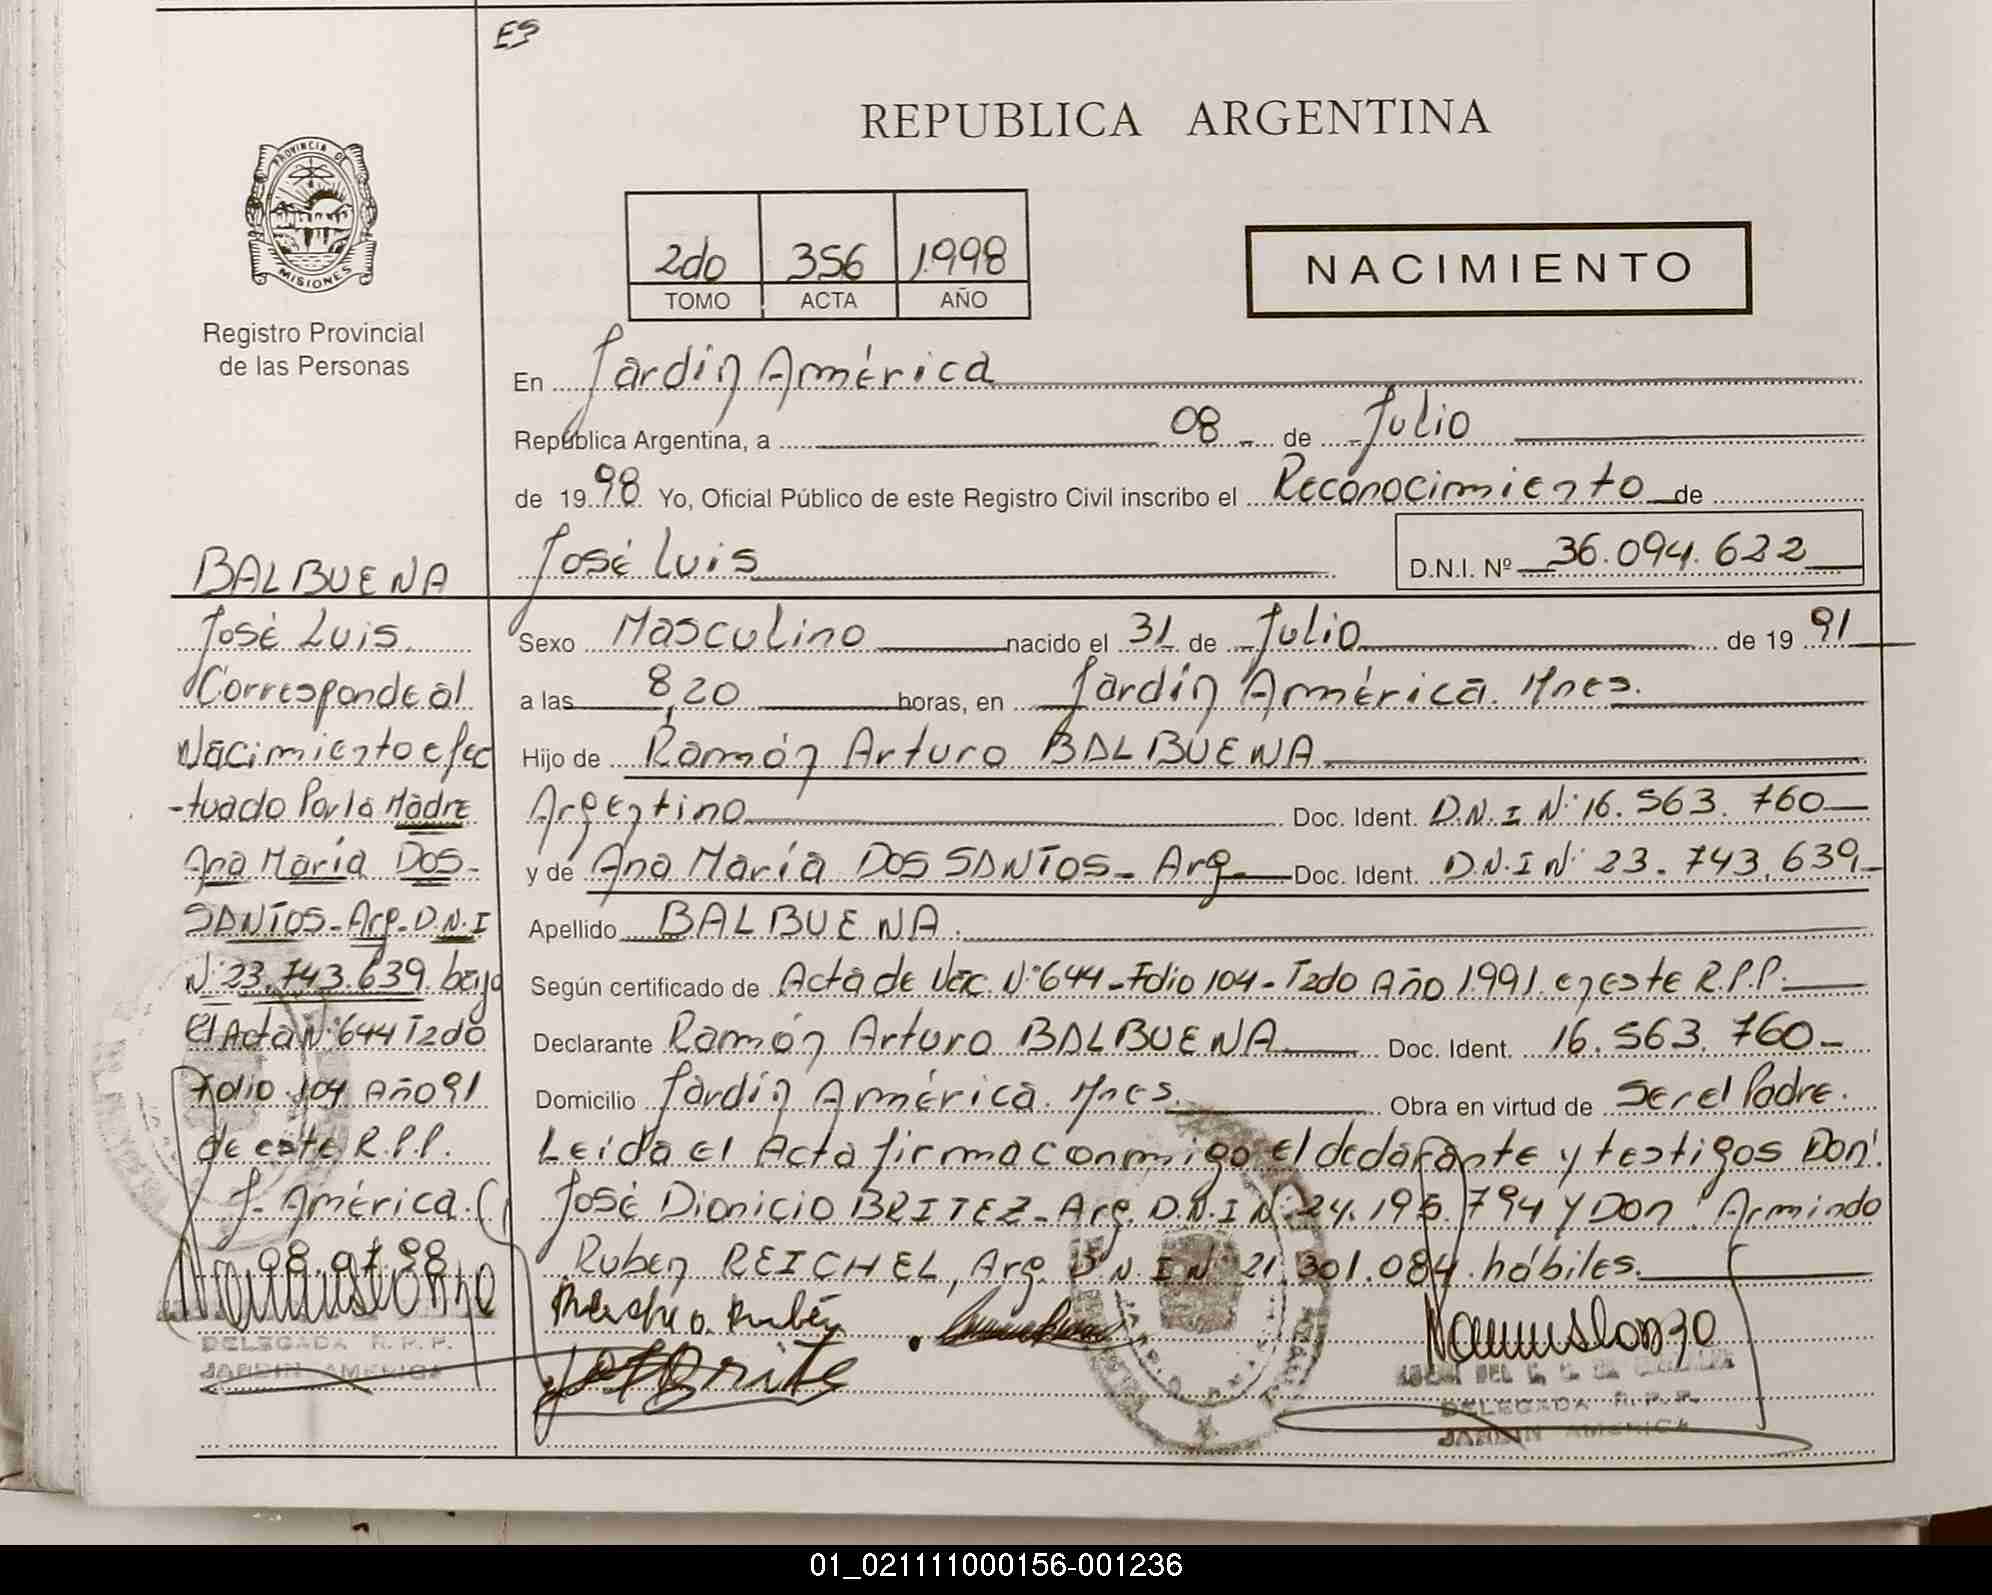 ES
PROVINCIA DE
MISIONES
Registro Provincial
de las Personas
REPUBLICA ARGENTINA
2do 356 1.998
TOMO ACTA AÑO
NACIMIENTO
En Jardín América
República Argentina, a 08 de Julio
de 19 98 Yo, Oficial Público de este Registro Civil inscribo el Reconocimiento de
José Luis D.N.I. Nº 36.094.622
Sexo Masculino nacido el 31 de Julio de 19 91
a las 8,20 horas, en Jardín América. Mnes.
Hijo de Ramón Arturo BALBUENA
Argentino Doc. Ident. D.N.I N° 16.563.760
y de Ana María DOS SANTOS - Arg. Doc. Ident. D.N.I N° 23.743.639.-
Apellido BALBUENA.
Según certificado de Acta de Nac. N° 644 - Folio 104 - T2do Año 1.991. en este R.P.P.
Declarante Ramón Arturo BALBUENA Doc. Ident. 16.563.760-
Domicilio Jardín América. Mnes. Obra en virtud de Ser el Padre.
Leída el Acta firma conmigo el declarante y testigos Don:
José Dionicio BRITEZ - Arg. D.N.I N° 24.195.794 y Don: Armindo
Ruben REICHEL, Arg. D.N.I N° 21.301.084 hábiles.
DELEGADA R.P.P.
JARDIN AMERICA
BALBUENA
José Luis.
Corresponde al
Nacimiento efec
-tuado Por la Madre
Ana María DOS-
SANTOS - Arg - D.N.I
N° 23.743.639. bajo
el Acta N° 644 T2do
Folio 104 Año 91
de este R.P.P.
J. América.
08.07.98
DELEGADA R.P.P.
JARDIN AMERICA
01_021111000156-001236